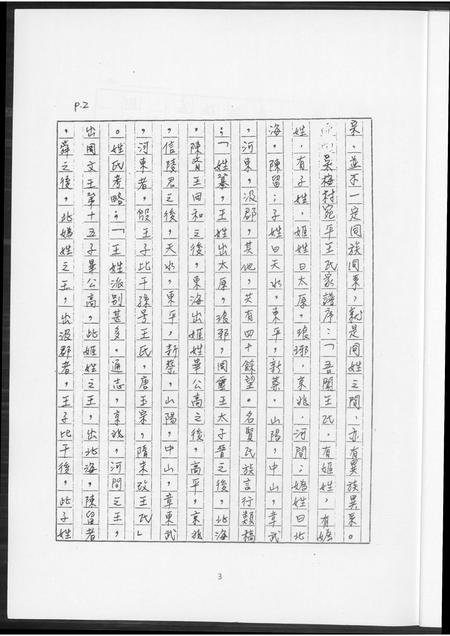 P.2
亲，並不一定同族同系，就是同姓之間，亦有異族異系。
吴梅村宛平王氏家譜序：「吾聞王氏，有姬姓，有媯
姓，有子姓，姬姓曰太原，瑯琊，京兆，河間；媯姓曰北
海，陳留；子姓曰天水，東平，新蔡，山陽，中山，章武
，河東，汲郡，其他，共有四十餘望。名賢氏族言行類稿
：「姓纂，王姓出太原，琅邪，周靈王太子晉之後，北海
，陳留王田和之後，東海出姬姓畢公高之後，高平，京兆
，信陵君之後，天水，東平，新蔡，山陽，中山，章東武
，河東者，殷王子比干孫子王氏，唐王梁，隋末改王氏」
。姓氏考略：「王姓派別甚多。通志，京兆，河間之王，
出周文王第十五子畢公高，此姬姓之王，出北海，陳留者
，舜之後，此媯姓之王，出汲郡者，王子比干後，此子姓
3